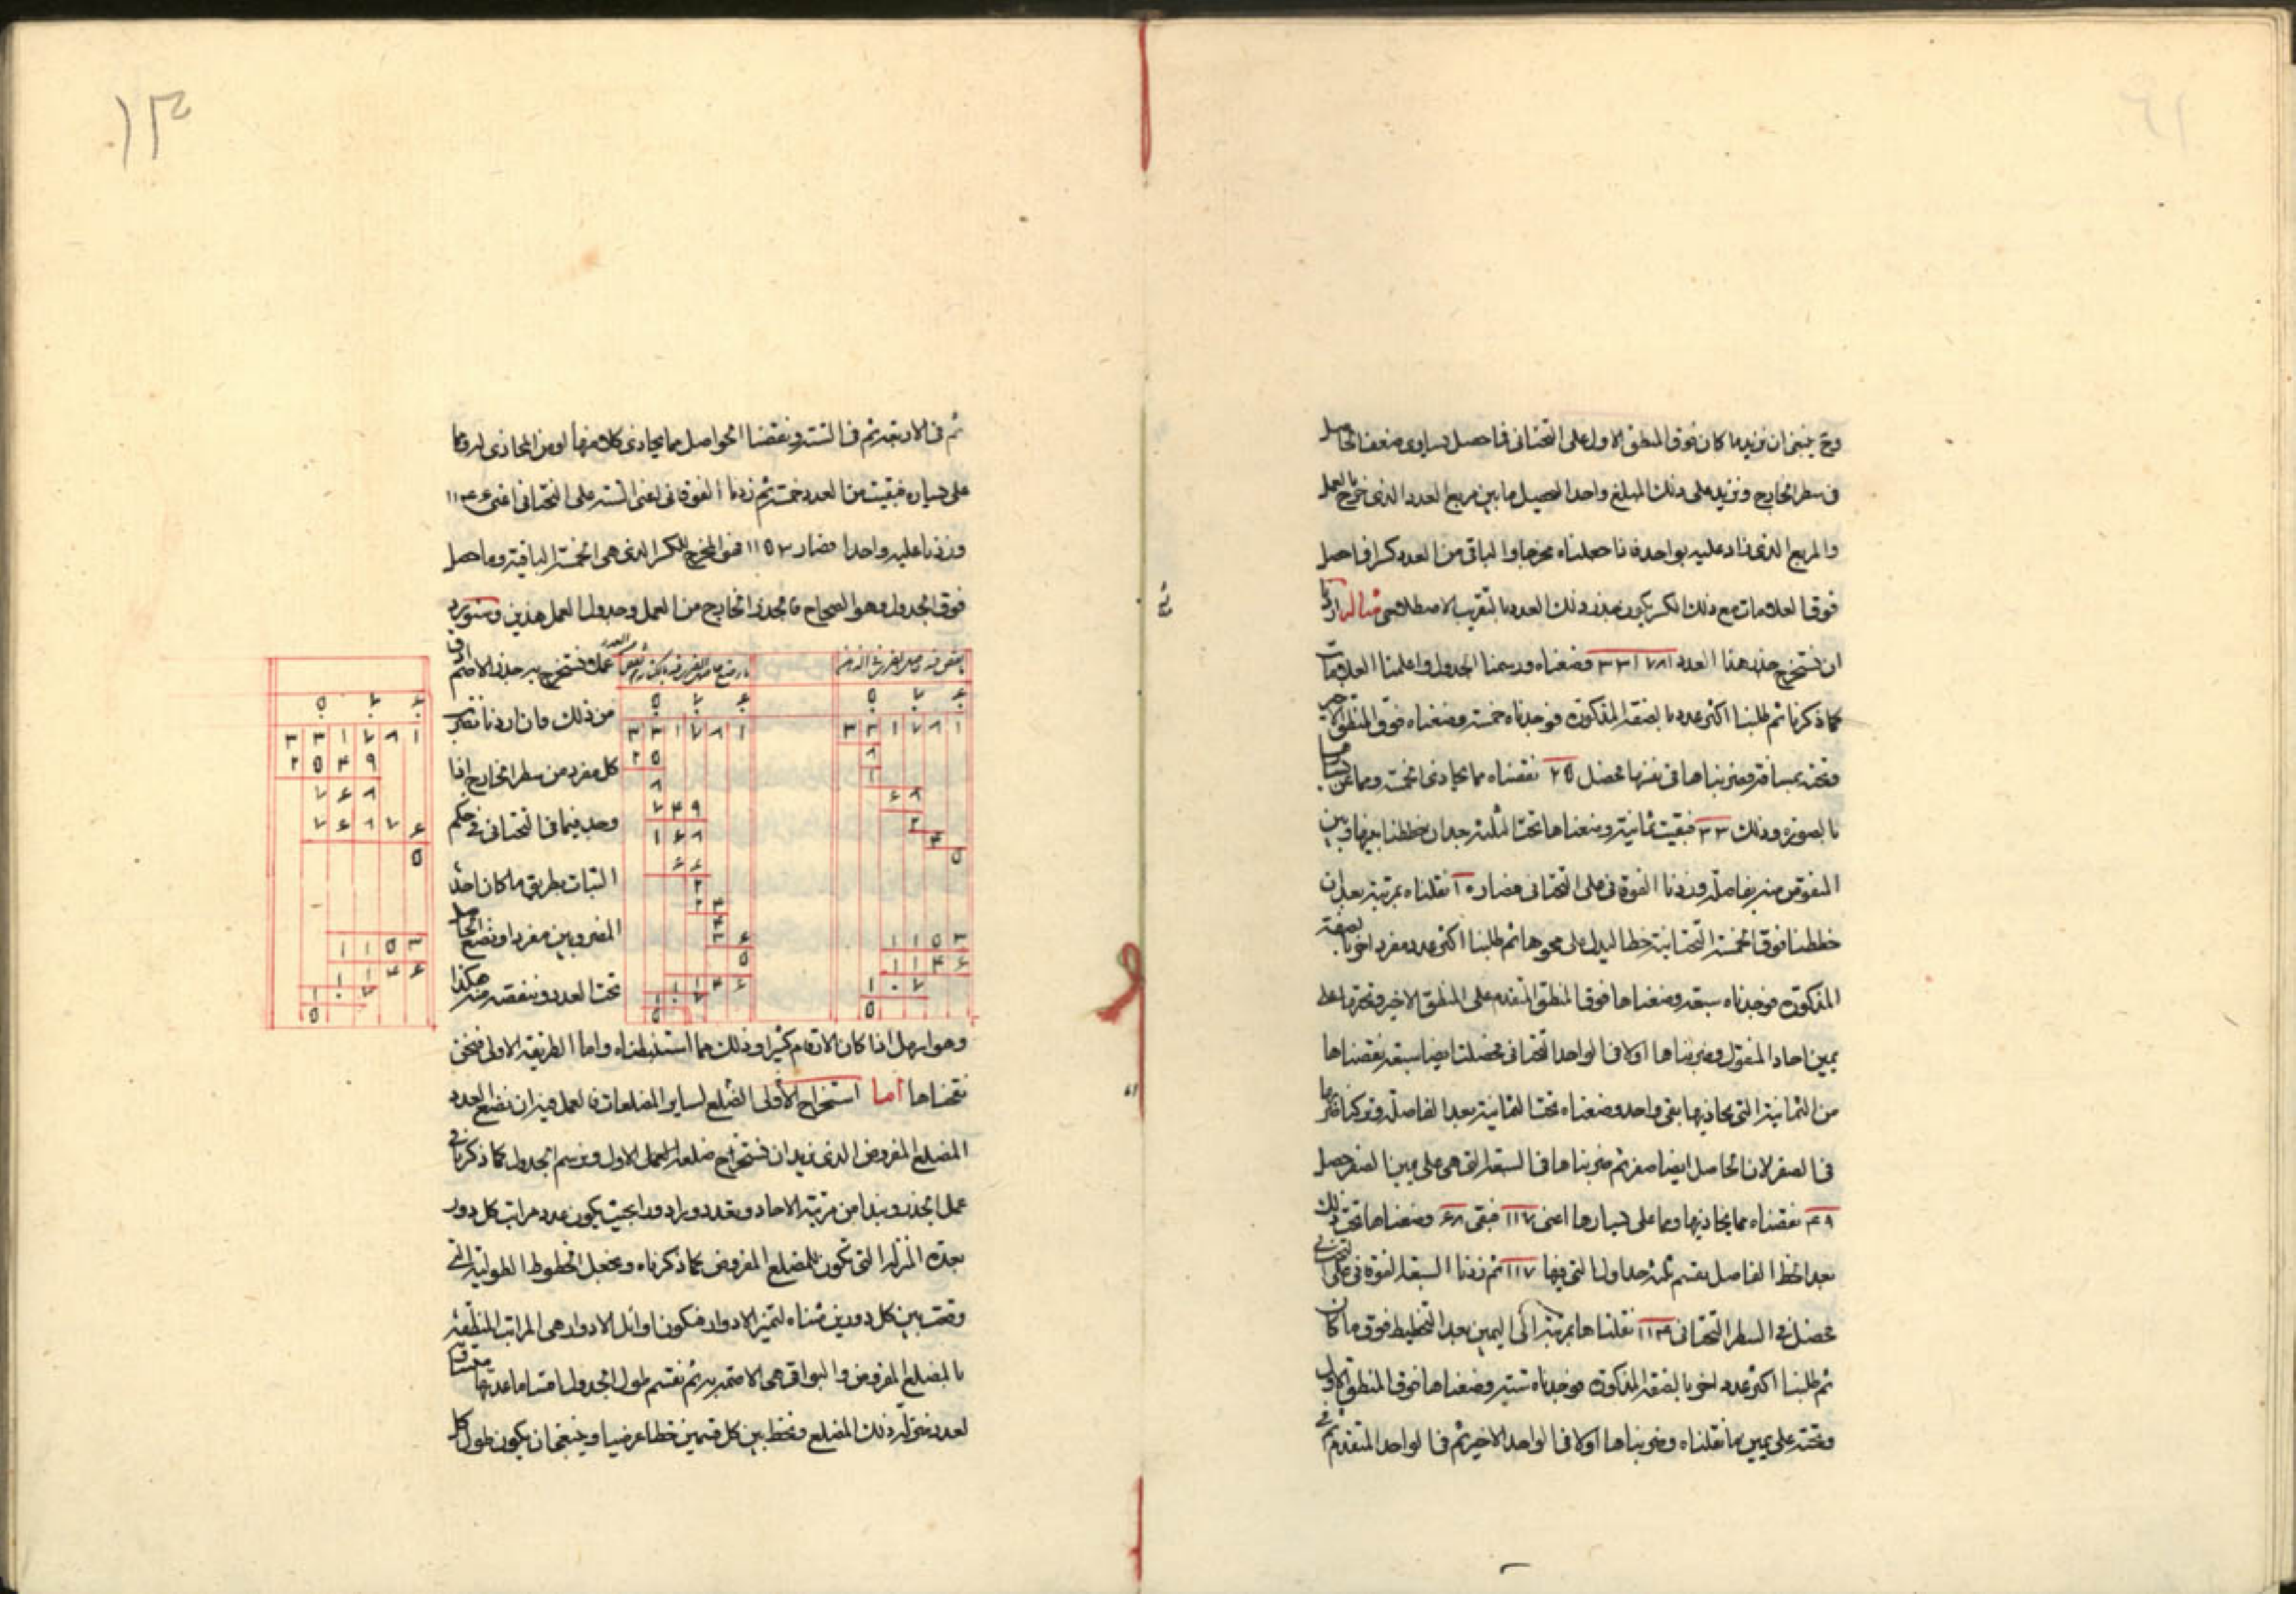 وح ينبغي ان نزيد ما كان فوق المنطق الاول على التحتاني فما حصل يساوي ضعف الحاصل
في سطر الخارج ونزيد على ذلك المبلغ واحدا ليحصل ما بين مربع العدد الذي خرج بالعمل
والمربع الذي زاد عليه بواحد فاذا جعلناه مخرجا والباقي من العدد كسرا فما حصل
فوق العلامات مع ذلك الكسر يكون جذر ذلك العدد بالتقريب الاصطلاحي مثاله اردنا
ان نستخرج جذر هذا العدد ٣٣١٧٨١ وضعناه ورسمنا الجدول واعلمنا العلامات
كما ذكرنا ثم طلبنا اكثر عدد بالصفة المذكورة فوجدناه خمسة وضعناه فوق المنطق الاخير
وتحته بمسافة وضربناها في نفسها فحصل ٢٥ نقصناه مما يحاذي الخمسة ومما عن يسارها
بالصورة وذلك ٣٣ فبقيت ثمانية وضعناها تحت الثلثة بعد ان خططنا بينها وبين
المنقوص منه بفاصلة وزدنا الفوقاني على التحتاني فصار ١٠ نقلناه بمرتبة بعد ان
خططنا فوق الخمسة التحتانية خطا ليدل على محوها ثم طلبنا اكثر عدد مفرد اخر بالصفة
المذكورة فوجدناه سبعة وضعناها فوق المنطق المتقدم على المنطق الاخير وتحته ما على
يمين احاد المنقول وضربناها اولا في الواحد التحتاني فحصلت ايضا سبعة نقصناها
من الثمانية التي يحاذيها بقي واحد وضعناه تحت الثمانية بعد الفاصلة وتركنا ضربها
في الصفر لان الحاصل ايضا صفر ثم ضربناها في السبعة التي هي على يمين الصفر حصل
٤٩ نقصناه مما يحاذيها وما على يسارها اعني ١١٧ فبقي ٦٨ وضعناها تحت ذلك
بعد الخط الفاصل بقسم ثلثة جداول التي فيها ١١٧ ثم زدنا السبعة الفوقاني على التحتاني
فحصل في السطر التحتاني ١١٤ نقلناها بمرتبة الى اليمين بعد التخطيط فوق ما كان
ثم طلبنا اكثر عدد اخر بالصفة المذكورة فوجدناه ستة وضعناها فوق المنطق الاول
وتحته على يمين ما نقلناه وضربناها اولا في الواحد الاخير ثم في الواحد المتقدم ثم في
١٣
ثم في الاربعة ثم في الستة ونقصنا الحواصل مما يحاذي كلا منها او من المحاذي له وما
على يساره فبقيت من العدد خمسة ثم زدنا الفوقاني اعني الستة على التحتاني اعني ١١٤٦
وزدنا عليه واحدا فصار ١١٥٣ فهو المخرج للكسر الذي هي الخمسة الباقية وما حصل
فوق الجدول وهو الصحاح فالجذر الخارج من العمل وجدول العمل هذين وسنورد
عملا نستخرج به جذر الاصم
من ذلك وان اردنا
كل مفرد من سطر الخارج اذا
وجد فيما في التحتاني في حكم
الثبات بطريق ما كان احد
المضروبين مفردا ونضع الحاصل
تحت العدد وننقصه منه هكذا
٦ ٧ ٥
٣ ٣ ١ ٧ ٨ ١
٨
١
٦ ٨
٢
٤
٥
١ ١ ٥ ٣
١ ١ ٤ ٦
١ ٠ ٧
٥
٦ ٧ ٥
٣ ٣ ١ ٧ ٨ ١
٢ ٥
٨
٧ ٤ ٩
١ ٦ ٨
٦ ٦
٢
٢ ٤
٤
٣ ٦
٥
١ ١ ٤ ٦
١ ٠ ٧
٥
٦ ٧ ٥
٣ ٣ ١ ٧ ٨ ١
٢ ٥ ٤ ٩
٧ ٦ ٨
٧ ٦ ٨ ٧ ٦
٥
١ ١ ٥ ٣
١ ١ ٤ ٦
١ ٠ ٧
٥
وهو اسهل اذا كان الارقام كثيرا وذلك مما استنبطناه واما الطريقة الاولى فنحن
نقحناها اما استخراج الأولى الضلع لساير المضلعات فالعمل فيه ان نضع العدد
المضلع المفروض الذي نريد ان نستخرج ضلعه العمل الاول ونرسم الجدول كما ذكرنا في
عمل الجذر ونبدا من مرتبة الاحاد ونعدد ورا دورا بحيث يكون عدد مراتب كل دور
بعدة المنزلة التي تكون للمضلع المفروض كما ذكرناه ونجعل الخطوط الطولية التي
وقعت بين كل دورين مثناه لتميز الادوار فيكون اوائل الادوار هي المراتب المنطقة
بالمضلع المفروض والبواقي هي الاصم به ثم نقسم طول الجدول اقساما عدتها مساوية
لعدد منزلة ذلك المضلع ونخط بين كل قسمين خطا عرضيا وينبغي ان يكون طول كل